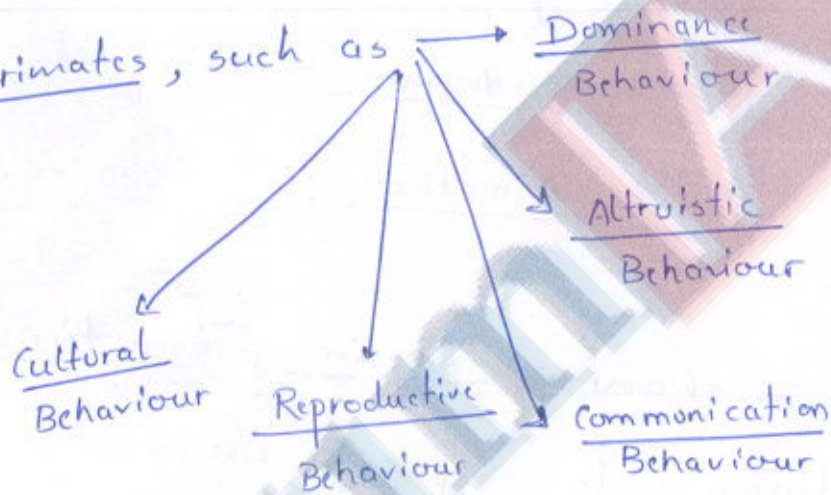 rimates, such as
Dominance
Behaviour
Altruistic
Behaviour
Communication
Behaviour
Reproductive
Behaviour
Cultural
Behaviour